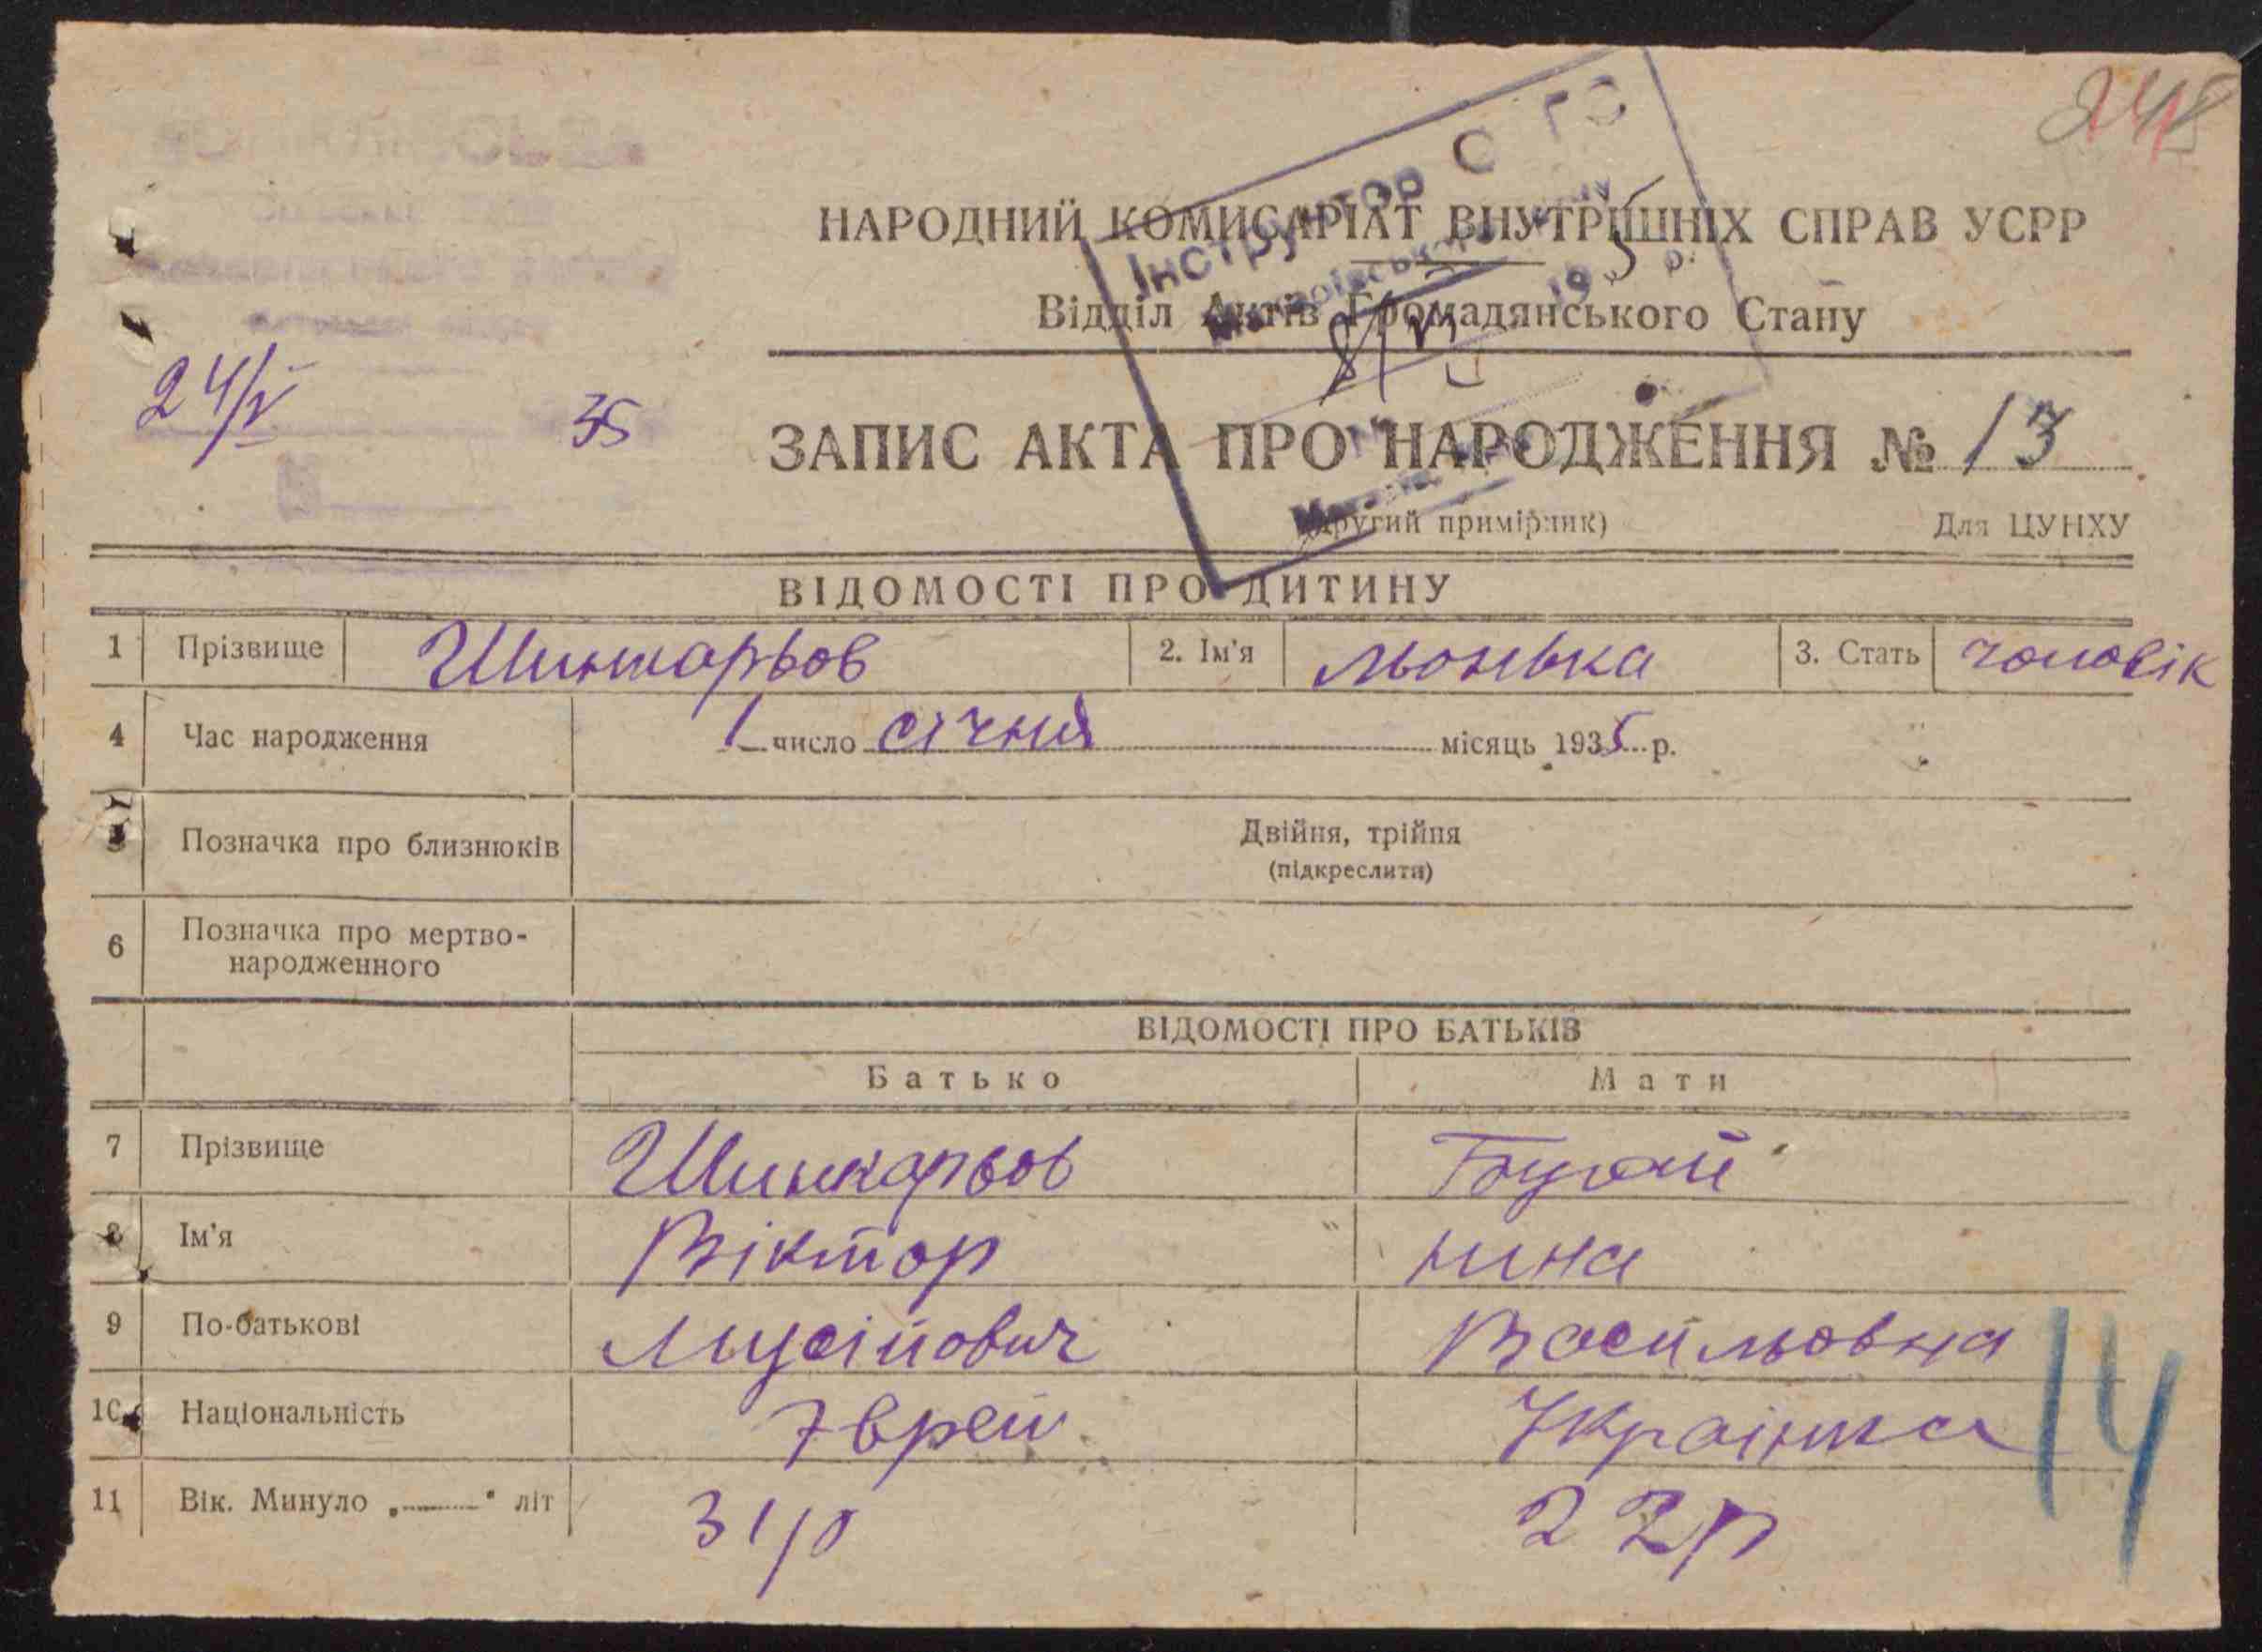 248
Інструктор
НАРОДНИЙ КОМИСАРІАТ ВНУТРІШНІХ СПРАВ УСРР
Відділ Актів Громадянського Стану
24/V 35
ЗАПИС АКТА ПРО НАРОДЖЕННЯ № 13
(Другий примірник) Для ЦУНХУ
ВІДОМОСТІ ПРО ДИТИНУ
1 Прізвище Шинкарьов 2. Ім'я Льонька 3. Стать чоловік
4 Час народження 1 число січня місяць 1935 р.
5 Позначка про близнюків Двійня, трійня
(підкреслити)
6 Позначка про мертво-
народженного
ВІДОМОСТІ ПРО БАТЬКІВ
Батько Мати
7 Прізвище Шинкарьов Бугай
8 Ім'я Віктор Нина
9 По-батькові Мусійович Васильовна
10 Національність Єврей Украінка
11 Вік. Минуло „ " літ 31р 22р
14